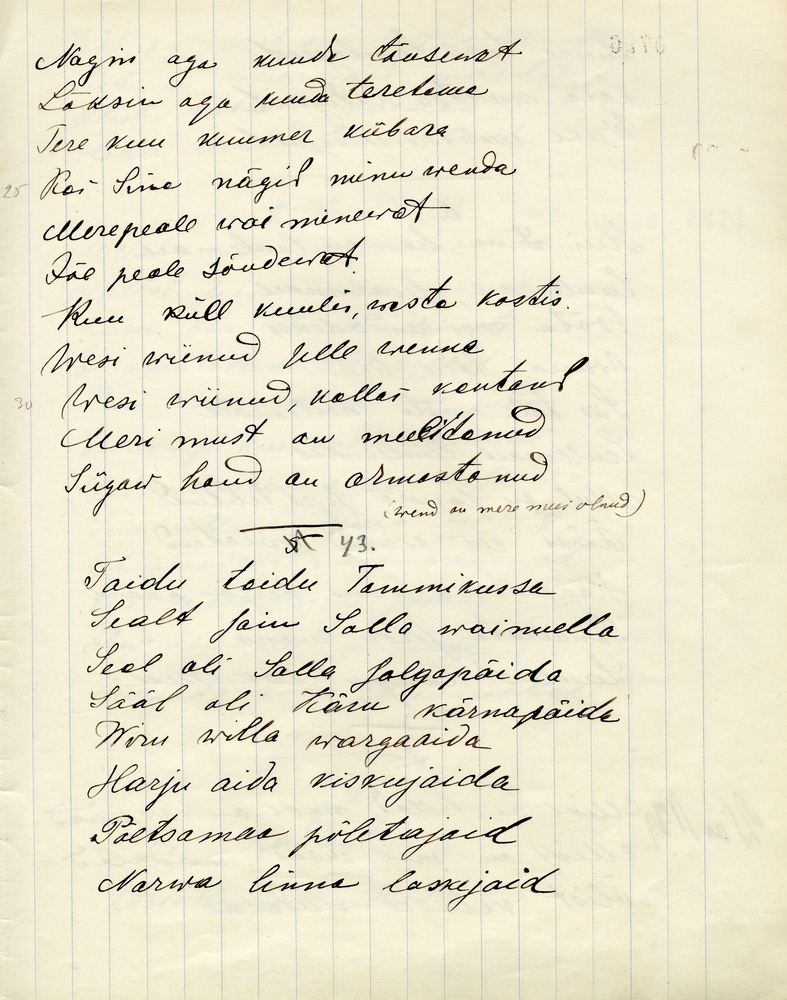 Nägin aga kuuda tõusewat
Läksin aga kuuda teretama
Tere kuu kuumer kübara
25 Kas Sina nägid minu wenda
Merepeale wai minewat
Jõe peale sõudewat
Kuu küll kuulis, wasta kostis.
Wesi wiinud selle wenna
30 Wesi wiinud, kallas kautand
Meri must on meelitanud
Sügaw haud on armastanud
(wend on mere mees olnud)
43.
Taidu taidu Tammikussa
Sealt sain Salla wainuella
Seal oli Salla salgapäida
Sääl oli Käru kärnapäida
Wiru willa wargaaida
Harju aida kiskujaida
Põltsamaa põletajaid
Narwa linna laskejaid